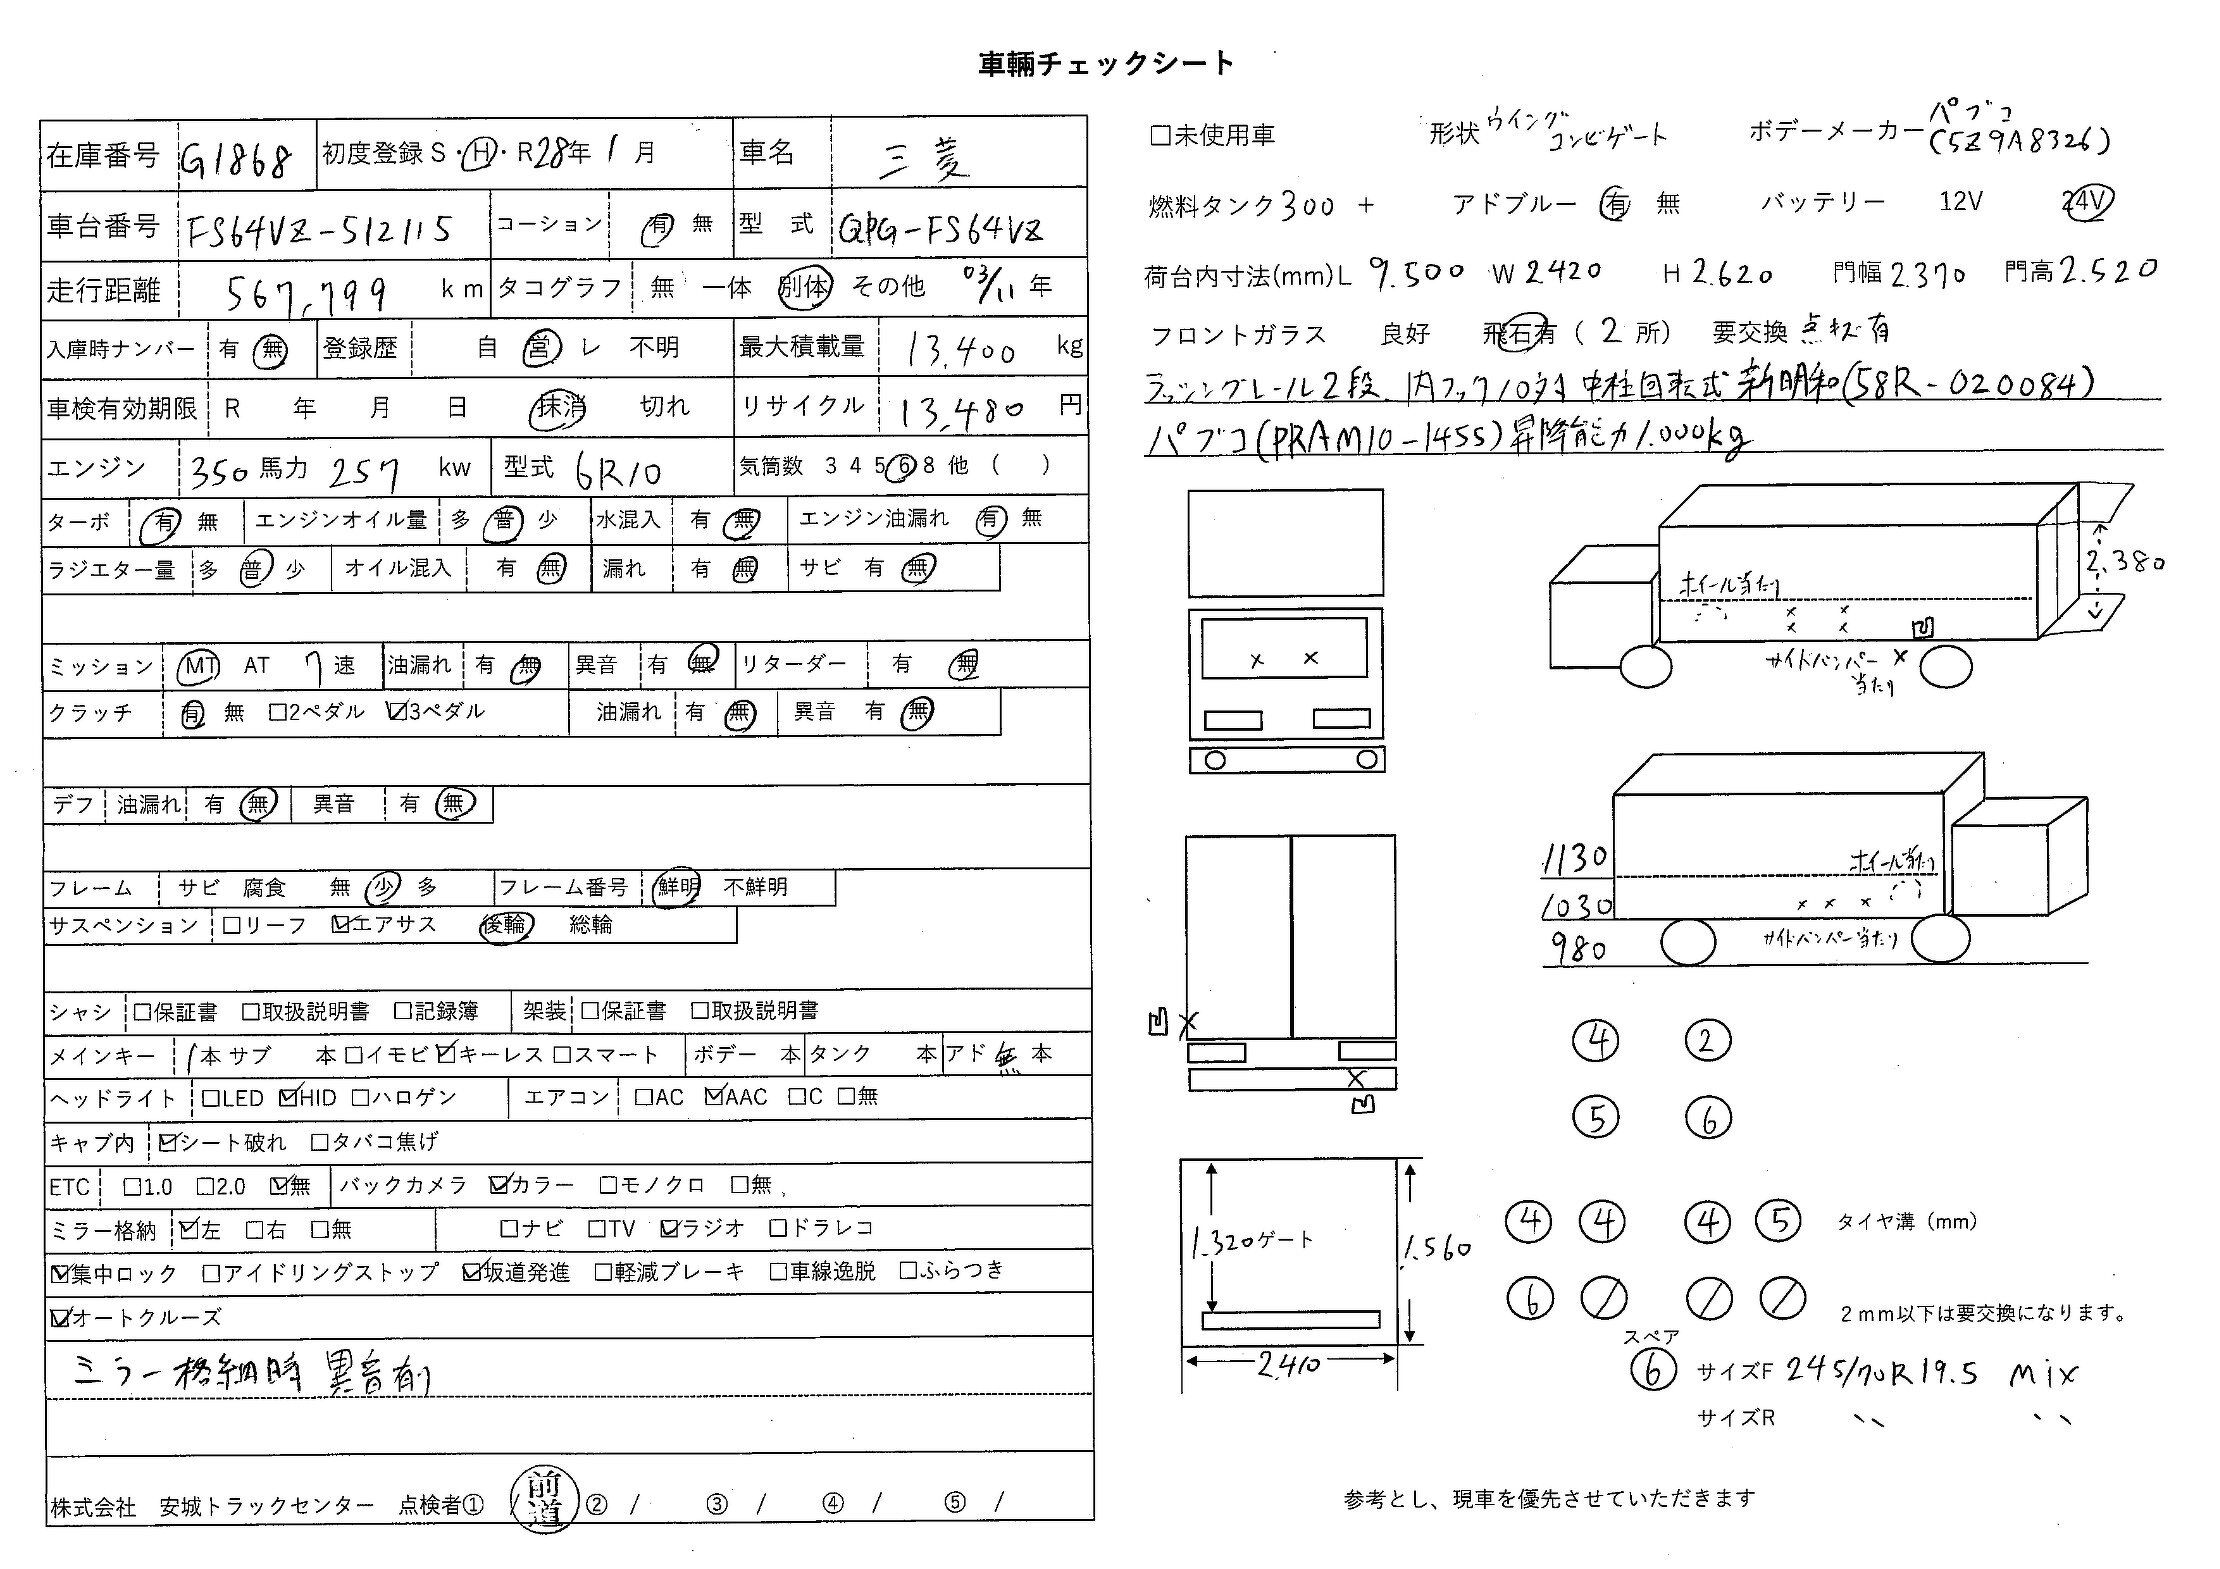 車輛チェックシート
在庫番号 G1868 初度登録 S・H・R 28年 1月 車名 三菱
車台番号 FS64VZ-512115 コーション 有 無 型式 QPG-FS64VZ
走行距離 567,799 km タコグラフ 無 一体 別体 その他 03/11年
入庫時ナンバー 有 無 登録歴 自 営 レ 不明 最大積載量 13,400 kg
車検有効期限 R 年 月 日 抹消 切れ リサイクル 13,480 円
エンジン 350馬力 257 kw 型式 6R10 気筒数 3 4 5 6 8 他 ( )
ターボ 有 無 エンジンオイル量 多 普 少 水混入 有 無 エンジン油漏れ 有 無
ラジエター量 多 普 少 オイル混入 有 無 漏れ 有 無 サビ 有 無
ミッション MT AT 7速 油漏れ 有 無 異音 有 無 リターダー 有 無
クラッチ 有 無 □2ペダル ☑3ペダル 油漏れ 有 無 異音 有 無
デフ 油漏れ 有 無 異音 有 無
フレーム サビ 腐食 無 少 多 フレーム番号 鮮明 不鮮明
サスペンション □リーフ ☑エアサス 後輪 総輪
シャシ □保証書 □取扱説明書 □記録簿 架装 □保証書 □取扱説明書
メインキー 1本 サブ 本 □イモビ ☑キーレス □スマート ボデー 本 タンク 本 アド 無 本
ヘッドライト □LED ☑HID □ハロゲン エアコン □AC ☑AAC □C □無
キャブ内 ☑シート破れ □タバコ焦げ
ETC □1.0 □2.0 ☑無 バックカメラ ☑カラー □モノクロ □無
ミラー格納 ☑左 □右 □無 □ナビ □TV ☑ラジオ □ドラレコ
☑集中ロック □アイドリングストップ ☑坂道発進 □軽減ブレーキ □車線逸脱 □ふらつき
☑オートクルーズ
ミラー格納時 異音有り
株式会社 安城トラックセンター 点検者① / 前道 ② / ③ / ④ / ⑤ /
□未使用車 形状 ウイング コンビゲート ボデーメーカー パブコ (5Z9A8326)
燃料タンク 300 + アドブルー 有 無 バッテリー 12V 24V
荷台内寸法(mm) L 9.500 W 2420 H 2.620 門幅 2.370 門高 2.520
フロントガラス 良好 飛石有 ( 2 所) 要交換 点状有
ラッシングレール2段. 内フック10対 中柱回転式 新明和(58R-020084)
パブコ(PRAM10-1455)昇降能力1.000kg
ホイール当たり
2.380
サイドバンパー 当たり
1130
ホイール当たり
1030
980
サイドバンパー当たり
④ ②
⑤ ⑥
④ ④ ④ ⑤ タイヤ溝 (mm)
⑥ 2mm以下は要交換になります。
1.320 ゲート
1.560
2.410
スペア
⑥ サイズF 245/70R19.5 Mix
サイズR 〃 〃
参考とし、現車を優先させていただきます